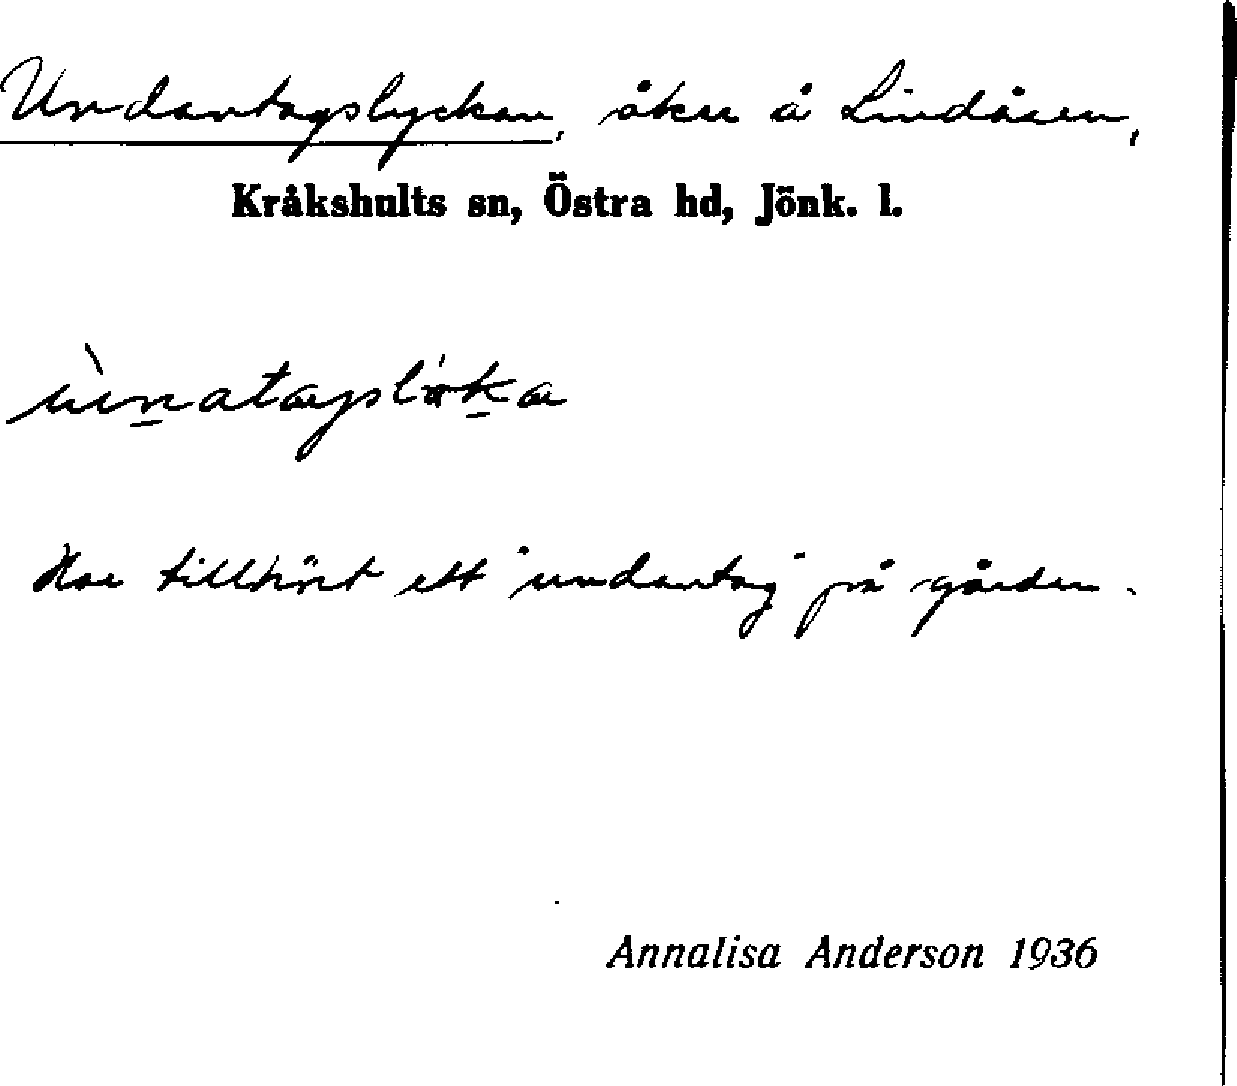 Undantagslyckan, åker å Lindåsen,
Kråkshults sn, Östra hd, Jönk. l.
Har tillhört ett "undantag" på gården.
Annalisa Anderson 1936